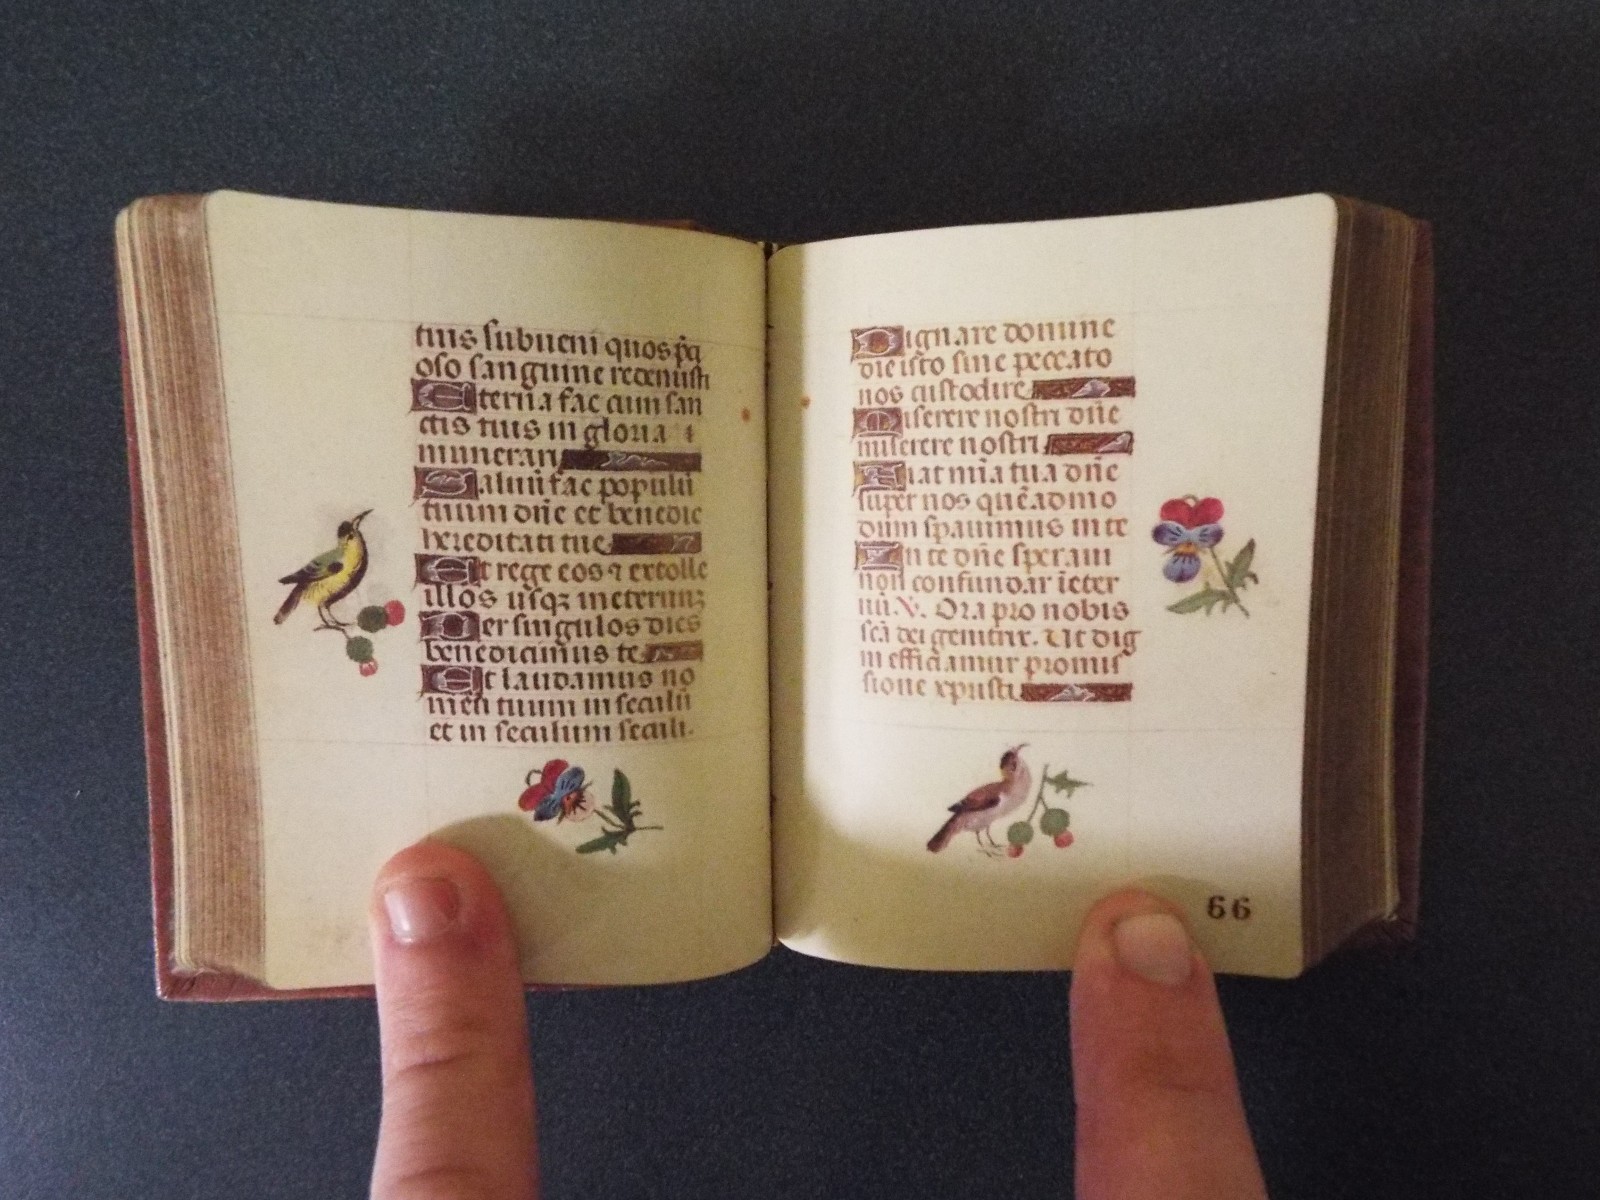 tuis subueni quos p̄ci
oso sanguine redemisti
Eterna fac cum san
ctis tuis in gloria
munerari
Saluū fac populū
tuum dn̄e et benedic
hereditati tue
Et rege eos ⁊ extolle
illos usqꝫ in eternuꝫ
Per singulos dies
benedicimus te
Et laudamus no
mē tuum in seculū
et in seculum seculi.
Dignare domine
die isto sine peccato
nos custodire
Miserere nostri dn̄e
miserere nostri
Fiat mīa tua dn̄e
super nos quē admo
dum spauimus in te
In te dn̄e speraui
non confundar īeter
nū V. Ora pro nobis
scā dei genitrix. Ut dig
ni effici amur promis
sione xpristi
66